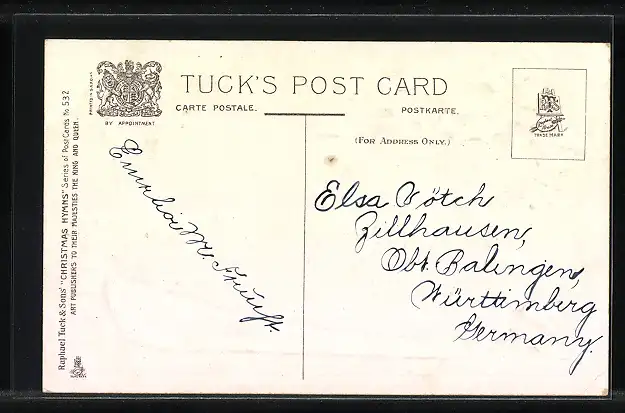 TUCK'S POST CARD
CARTE POSTALE.
POSTKARTE.
BY APPOINTMENT
(FOR ADDRESS ONLY.)
TRADE MARK
Raphael Tuck & Sons' "CHRISTMAS HYMNS" Series of Post Cards No 532
ART PUBLISHERS TO THEIR MAJESTIES THE KING AND QUEEN.
Elsa Vötch
Zillhausen,
Obt. Balingen,
Württimberg
Germany.